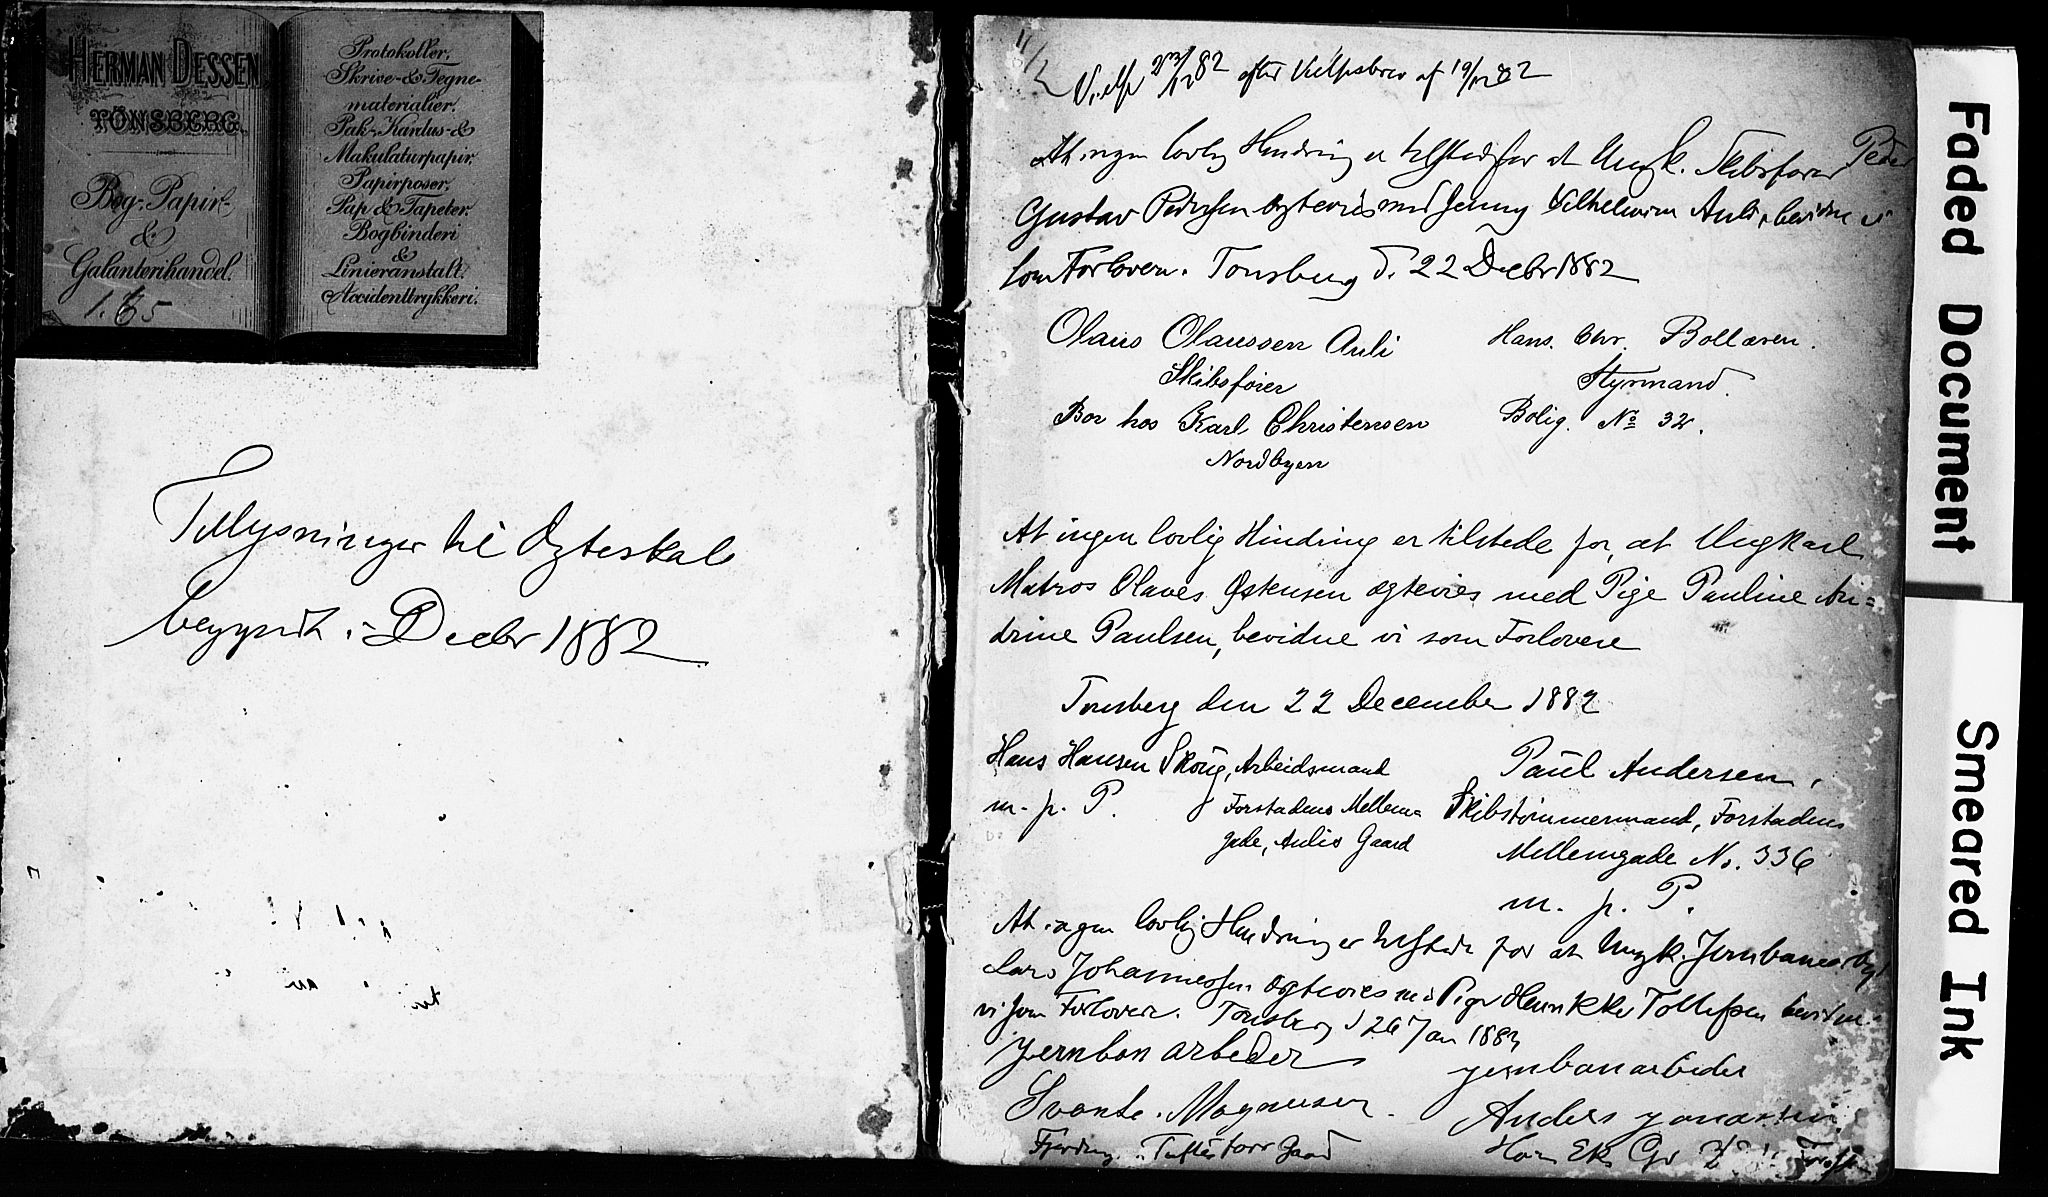 HERMAN DESSEN
TÖNSBERG.
Bog-, Papir-
&
Galanterihandel.
1.65
Protokoller.
Skrive- & Tegne-
materialier.
Pak-, Kardus- &
Makulaturpapir.
Papirposer.
Pap & Tapeter.
Bogbinderi
&
Linieranstalt.
Accidenttrykkeri.
Tillysninger til Ægteskab
begyndt i Decbr 1882
Vielse 23/12 82 efter Vielsesbrev af 19/12 82
At ingen lovlig Hindring er tilstede for at Ungk. Skibsfører Peder
Gustav Pedersen ægtevies med Jenny Vilhelmine Auli, bevidne vi
som Forlovere. Tønsberg d. 22 Decbr 1882
Olaus Olaussen Auli
Skibsfører
Bor hos Karl Christensen
Nordbyen
Hans. Chr. Bollæren.
Styrmand.
Bolig. No 32.
At ingen lovlig Hindring er tilstede for, at Ungkarl
Matros Olaves Østensen ægtevies med Pige Pauline An=
drine Paulsen, bevidne vi som Forlovere
Tønsberg den 22 December 1882
Hans Hansen Skoug, Arbeidsmand
m. p. P. Forstadens Mellem=
gade, Aulis Gaard
Paul Andersen,
Skibstømmermand, Forstadens
Mellemgade No. 336
m. p. P.
At ingen lovlig Hindring er tilstede for at Ungk. Jernbanearb
Lars Johannessen ægtevies med Pige Tollefsen bevidne
vi som Forlovere. Tønsberg d 26 Jan 1883
jernban arbeder
Svante. Magnusen.
Gaad
jernbanarbeder
Anders jonassen
Faded Document
Smeared Ink